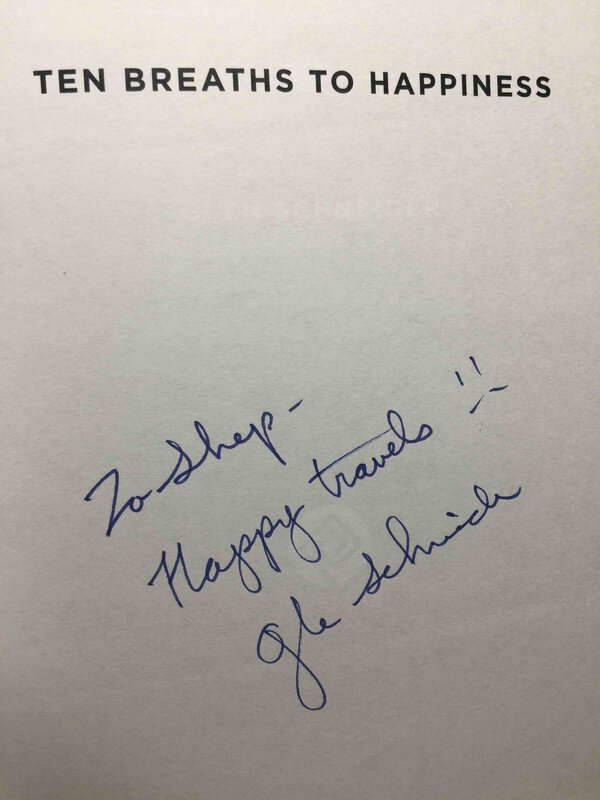 TEN BREATHS TO HAPPINESS
To Shep-
Happy travels !!